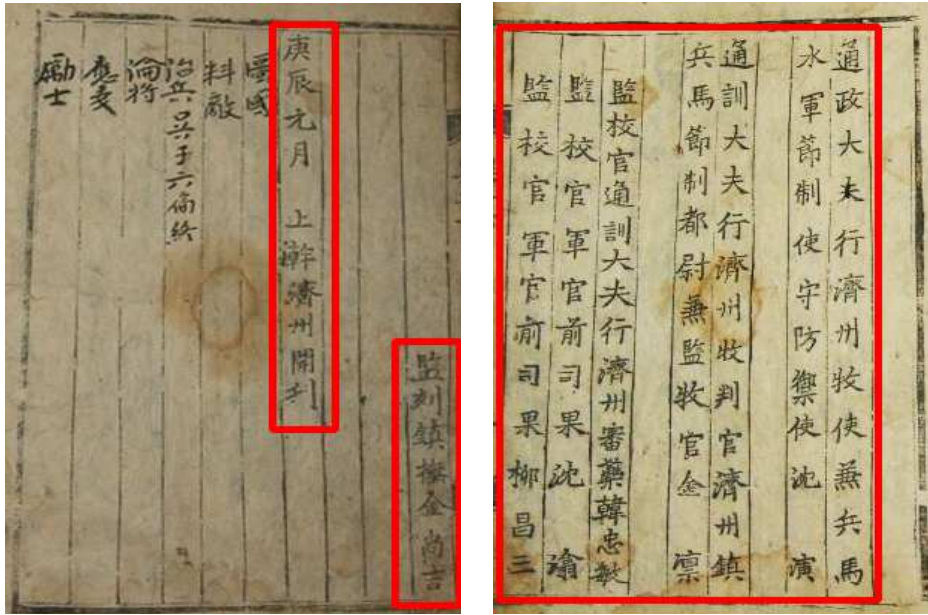 通政大夫行濟州牧使兼兵馬
水軍節制使守防禦使沈 演
通訓大夫行濟州牧判官濟州鎮
兵馬節制都尉兼監牧官金 凜
監校官通訓大夫行濟州審藥韓忠敏
監校官軍官前司果沈
監校官軍官前司果柳昌三
監刻鎮撫金尚吉
庚辰元月 上澣濟州開刊
圖國
料敵
治兵 吳子六篇終
論將
應変
勵士